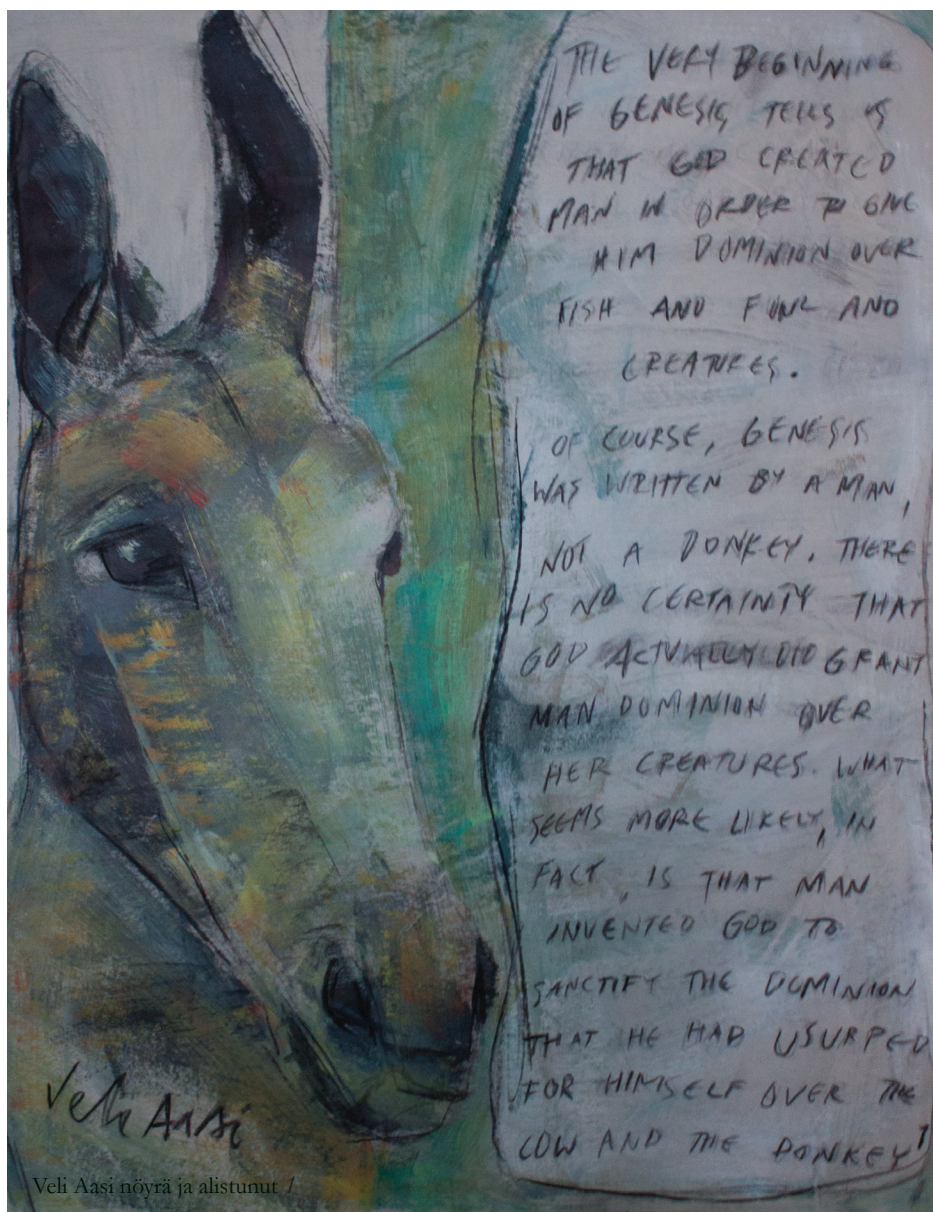 THE VERY BEGINNING
OF GENESIS TELLS US
THAT GOD CREATED
MAN IN ORDER TO GIVE
HIM DOMINION OVER
FISH AND FOWL AND
CREATURES.
OF COURSE, GENESIS
WAS WRITTEN BY A MAN,
NOT A DONKEY. THERE
IS NO CERTAINTY THAT
GOD ACTUALLY DID GRANT
MAN DOMINION OVER
HER CREATURES. WHAT
SEEMS MORE LIKELY, IN
FACT, IS THAT MAN
INVENTED GOD TO
SANCTIFY THE DOMINION
THAT HE HAD USURPED
FOR HIMSELF OVER THE
COW AND THE DONKEY
Veli Aasi
Veli Aasi nöyrä ja alistunut 1